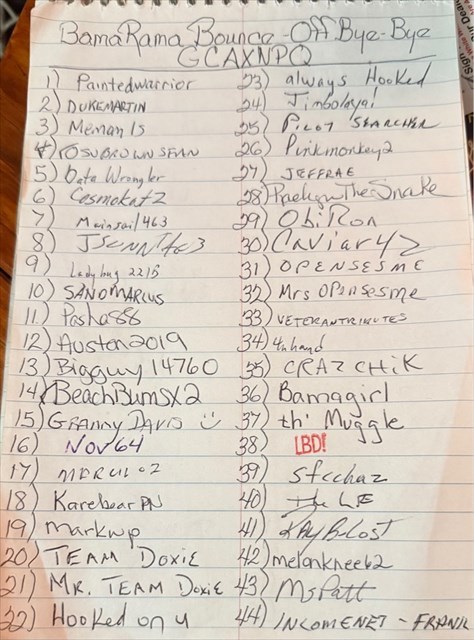 BamaRama Bounce-Off Bye-Bye
GCAXNPQ
1) Paintedwarrior
2) DUKEMARTIN
3) Meman 1s
4) OSUBROWNSFAN
5) Data Wrangler
6) Cosmokatz
7) Mainsail463
8)
9) Lady bug 2215
10) SANDMARCUS
11) Pasha88
12) Auston2019
13) Bigguy 14760
14) BeachBumsx2
15) GRANNY DAVIS
16) NOV64
17)
18) Karebear PN
19) markwp
20) TEAM DOXIE
21) MR. TEAM DOXIE
22) Hooked on u
23) always Hooked
24)
25) PILOT SEARCHER
26) Pinkmonkey2
27) JEFFRAE
28) The Snake
29) ObiRon
30) Caviar42
31) OPENSESME
32) Mrs OPensesme
33) VETERANTRIBUTES
34) 4nhand
35) CRAZ CHiK
36) Bamagirl
37) th' Muggle
38) LBD!
39) stcchaz
40) The LE
41)
42) melonknee62
43) MsPatt
44) INCOMENET - FRANK